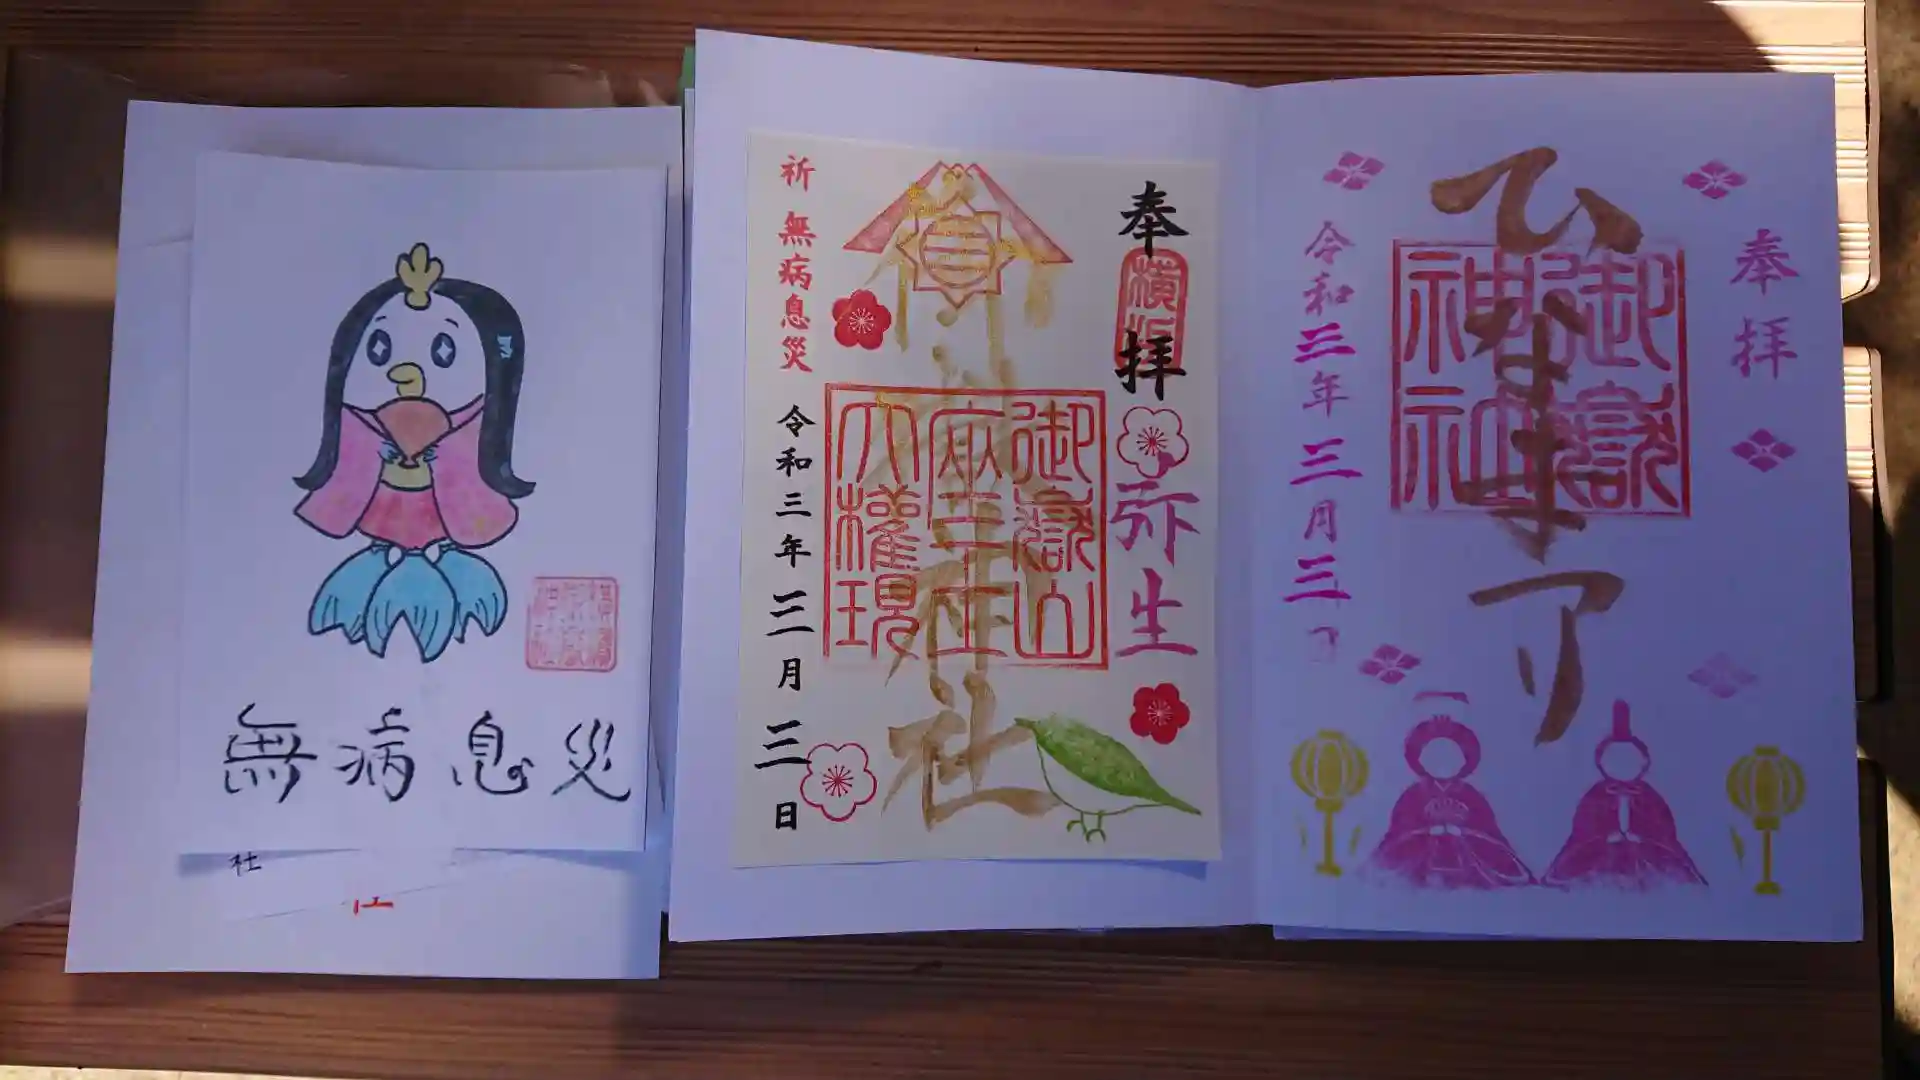 無病息災
社
奉拝
横浜
弥生
御嶽山
座王
大権現
神社
祈 無病息災
令和三年三月三日
奉拝
ひなまつり
御嶽
神社
令和三年三月三